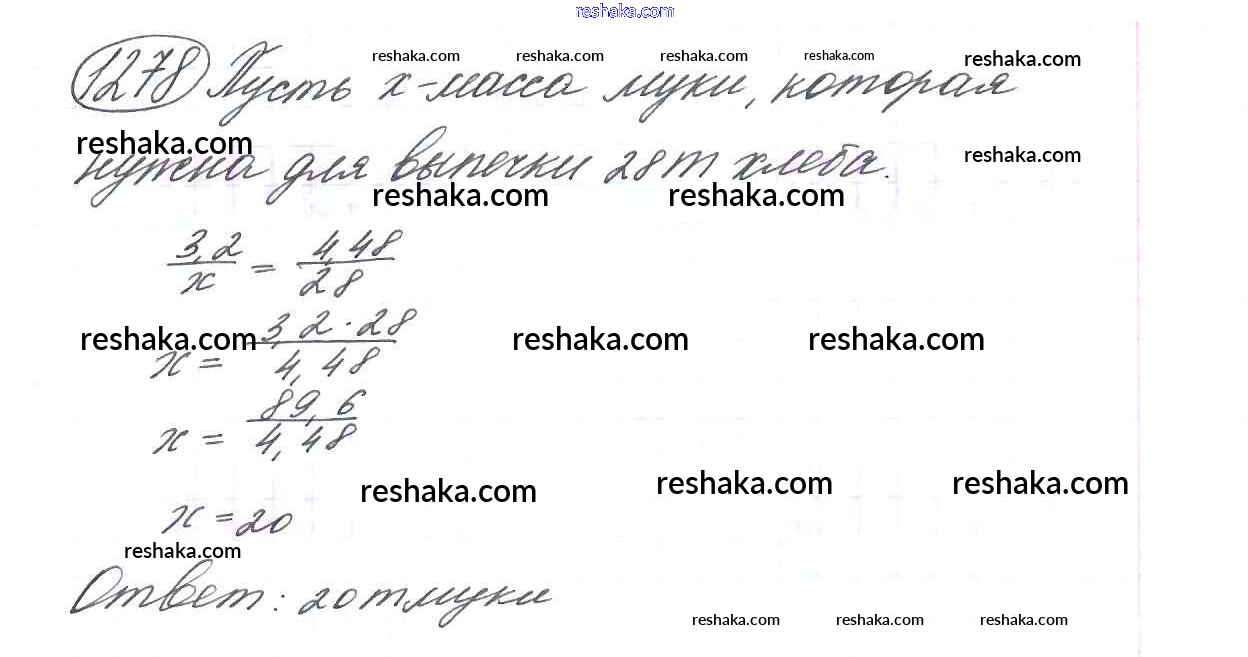 reshaka.com
reshaka.com reshaka.com reshaka.com reshaka.com reshaka.com
1278 Пусть x - масса муки, которая
reshaka.com reshaka.com
нужна для выпечки 28 т хлеба.
reshaka.com reshaka.com
3,2/x = 4,48/28
reshaka.com reshaka.com reshaka.com
x = 3,2·28/4,48
x = 89,6/4,48
reshaka.com reshaka.com reshaka.com
x = 20
reshaka.com
Ответ: 20 т муки
reshaka.com reshaka.com reshaka.com